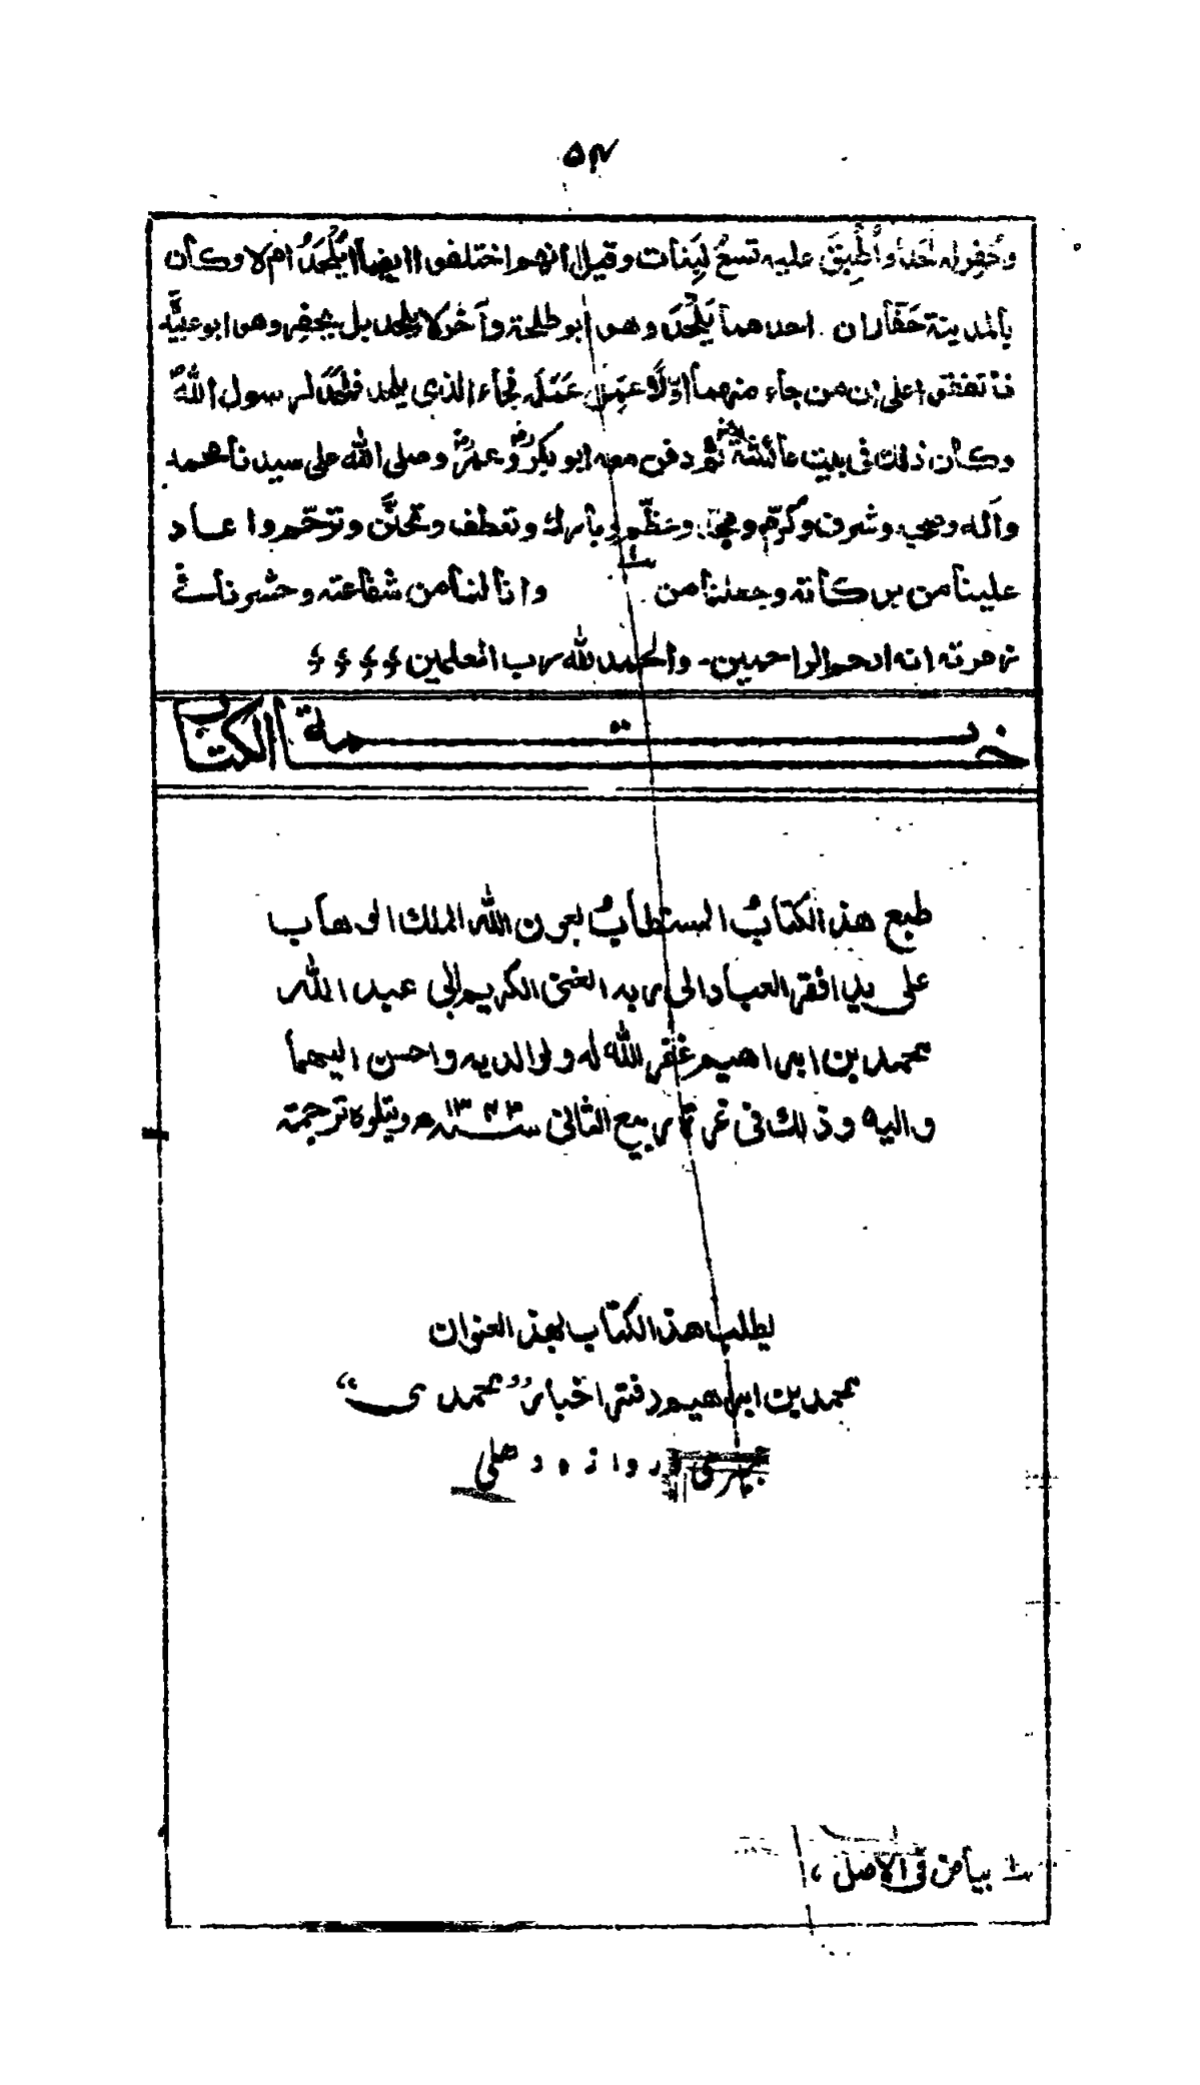 ۵۴
وحُفِر له لَحَدٌ وأُطْبِقَ عليه تسعُ لَبِنَات وقيل انهم اختلفوا ايضاً ايُلْحَدُ ام لا وكان
بالمدينة حَفّاران احدهما يَلْحَدُ وهو ابو طلحة وآخر لا يلحد بل يحفر وهو ابو عبيدة
فاتفقوا على ان من جاء منهما اوّلًا عمِل عَمَلَه فجاء الذي يلحد فلَحَدَ لرسول الله
وكان ذلك في بيت عائشة ثم دفن معه ابو بكر وعمر وصلى الله على سيدنا محمد
وآله وصحبه وشرف وكرّم ومجّد وعظّم وبارك وتعطف وتحنّن وترحّم واعاد
علينا من بركاته وجعلنا من ۱؎ وانالنا من شفاعته وحشرنا في
زمرته انه ارحم الراحمين۔ والحمد لله رب العلمين
خاتمة الكتاب
طبع هذا الكتابُ المستطابُ بعون الله الملك الوهاب
على يد افقر العباد الى ربه الغني الكريم ابي عبد الله
محمد بن ابراهيم غفر الله له ولوالديه واحسن اليهما
واليه وذلك في غرة ربيع الثاني سنہ ١٣٤٣ھ ويتلوه ترجمته
يطلب هذا الكتاب بهذا العنوان
محمد بن ابراهيم دفتر اخبار ”محمدی“
اجمیری دروازہ دهلی
۱؎ بياض في الاصل،